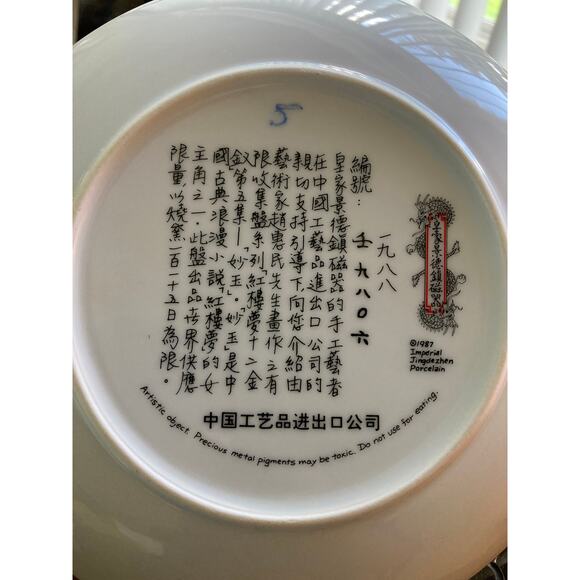 5
編號：
一九八八
壬九八０六
皇家景德鎮磁器的手工藝者
在中國工藝品進出口公司的
親切支持引導下，向您介紹由
藝術家趙惠民先生畫作之有
限收集盤系列「紅樓夢十二金
釵」第五集—「妙玉」。妙玉是中
國古典浪漫小說「紅樓夢」的女
主角之一。此盤出品世界供應
限量，以燒窯一百一十五日為限。
皇家景德鎮磁器
©1987
Imperial
Jingdezhen
Porcelain
中国工艺品进出口公司
Artistic object. Precious metal pigments may be toxic. Do not use for eating.